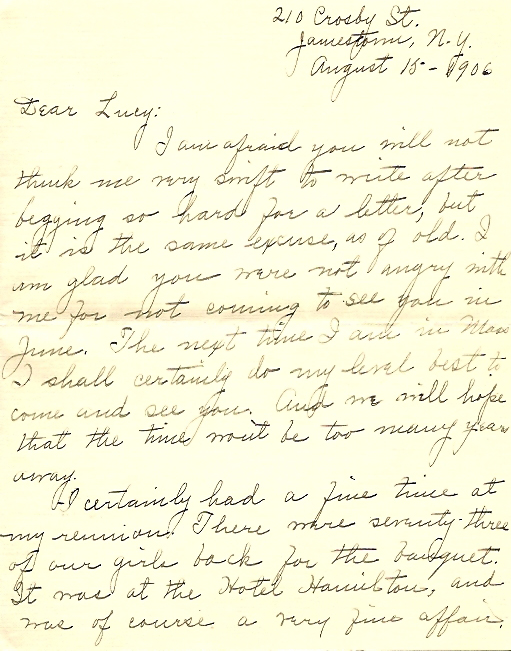 210 Crosby St.
Jamestown, N.Y.
August 15 - 1906
Dear Lucy:
I am afraid you will not
think me very swift to write after
begging so hard for a letter, but
it is the same excuse, as of old. I
am glad you were not angry with
me for not coming to see you in
June. The next time I am in Mass
I shall certainly do my level best to
come and see you. And we will hope
that the time wont be too many years
away.
I certainly had a fine time at
my reunion. There were seventy-three
of our girls back for the banquet.
It was at the Hotel Hamilton, and
was of course a very fine affair.